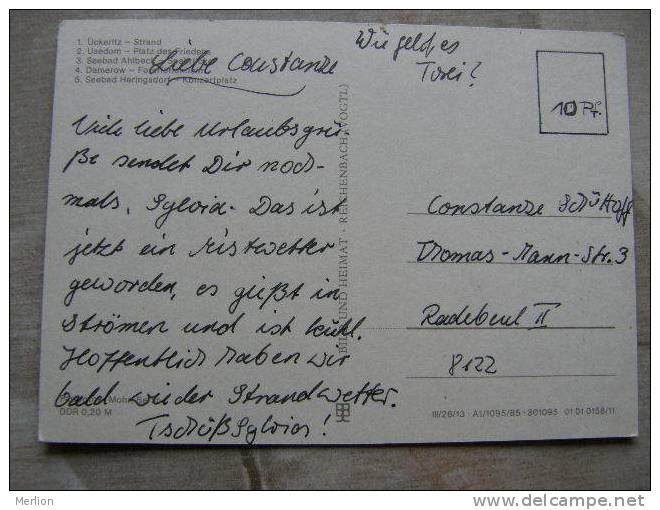 1. Ückeritz – Strand
2. Usedom – Platz des Friedens
3. Seebad Ahlbeck
4. Damerow –
5. Seebad Heringsdorf – Konzertplatz
Liebe Constanze
Viele liebe Urlaubsgrü-
ße sendet Dir noch-
mals, Sylvia. Das ist
jetzt ein Mistwetter
geworden, es gießt in
Strömen und ist kühl.
Hoffentlich haben wir
bald wieder Strandwetter.
Tschüß Sylvia!
DDR 0,20 M
BILD UND HEIMAT · REICHENBACH (VOGTL)
Wie geht es
Tosci?
10 Pf.
Constanze
Thomas-Mann-Str. 3
Radebeul II
8122
III/26/13 A1/1095/85 301095 01 01 0158/11
Merlion
www.delcampe.net